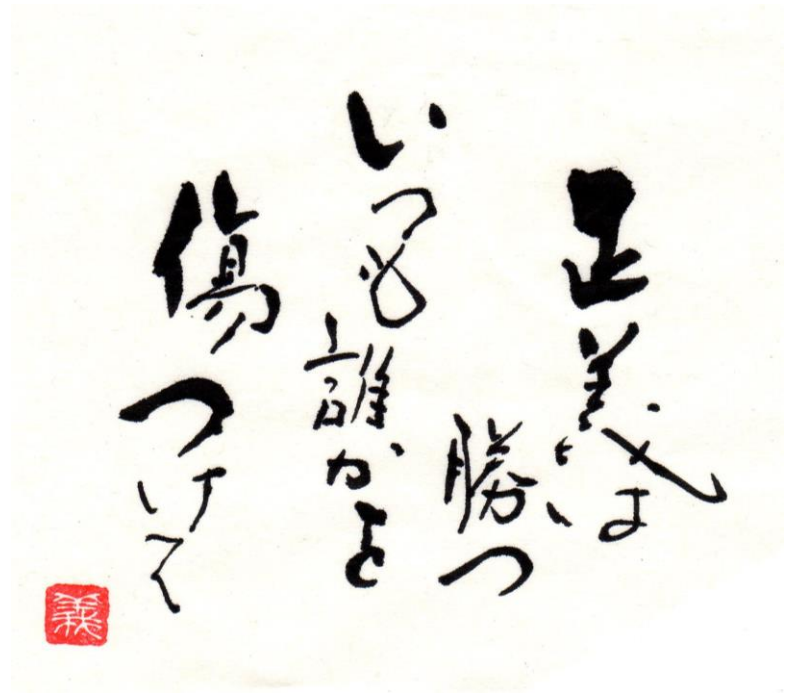 正義は
勝つ
いつも誰かを
傷つけて
義